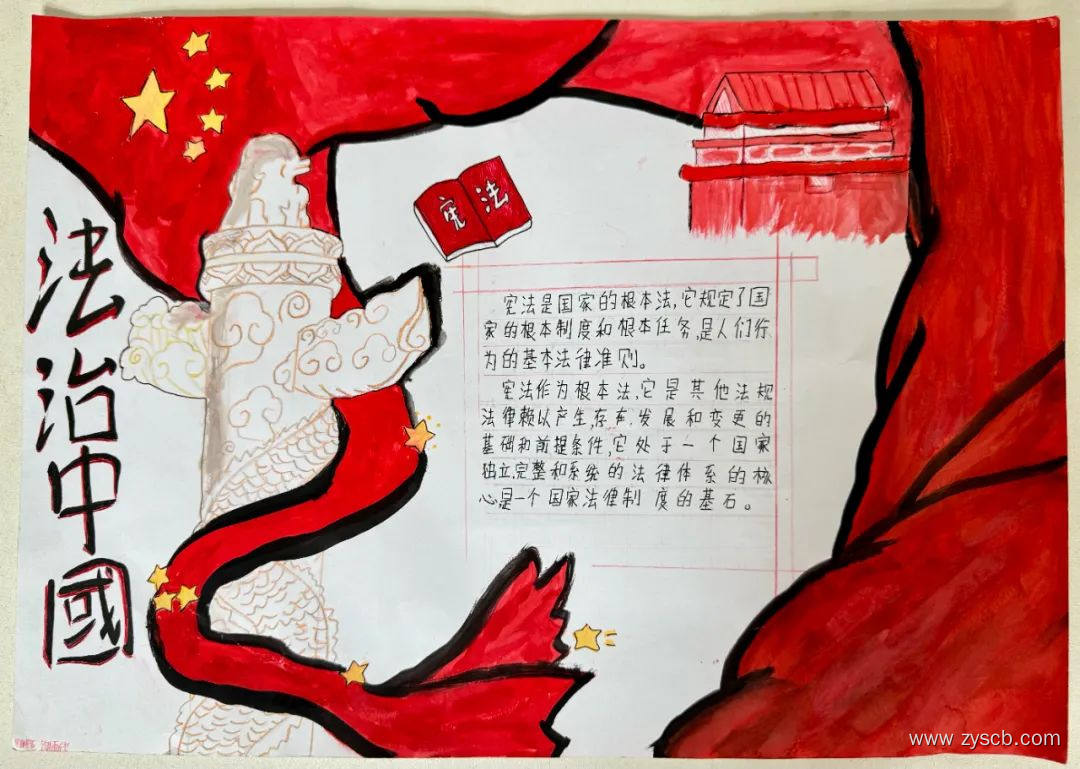 法治中國
宪法
宪法是国家的根本法,它规定了国
家的根本制度和根本任务,是人们行
为的基本法律准则。
宪法作为根本法,它是其他法规
法律赖以产生,存在,发展和变更的
基础和前提条件,它处于一个国家
独立,完整和系统的法律体系的核
心是一个国家法律制度的基石。
www.zyscb.com